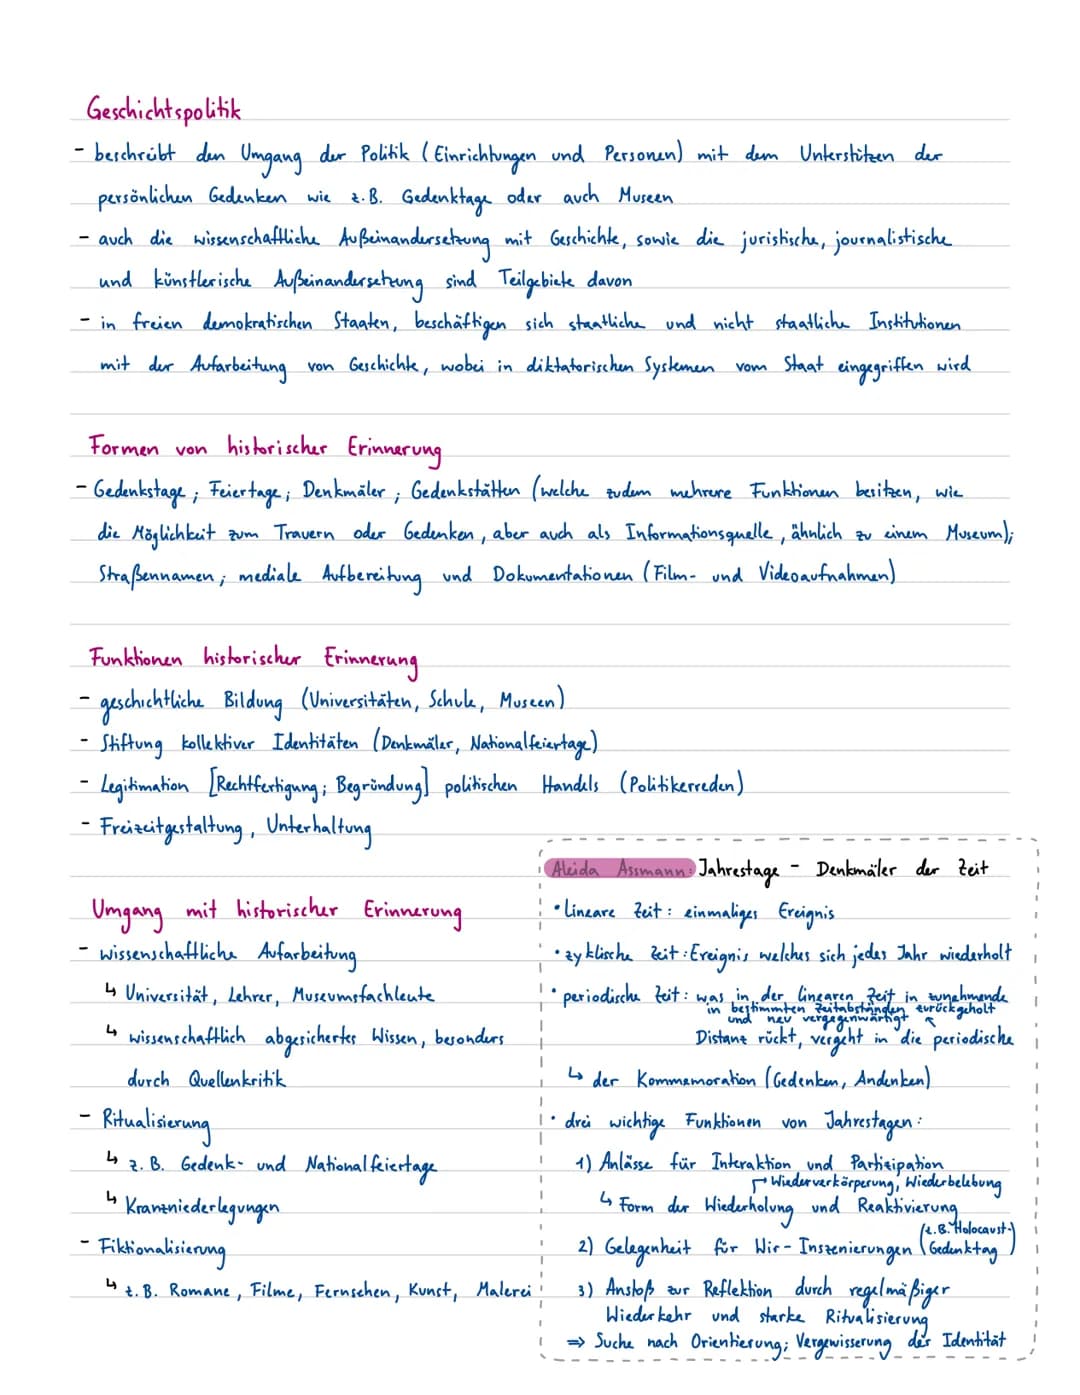 Geschichtspolitik
- beschreibt den Umgang der Politik (Einrichtungen und Personen) mit dem Unterstützen der
persönlichen Gedenken wie z.B. Gedenktage oder auch Museen
- auch die wissenschaftliche Außeinandersetzung mit Geschichte, sowie die juristische, journalistische
und künstlerische Außeinandersetzung sind Teilgebiete davon
- in freien demokratischen Staaten, beschäftigen sich staatliche und nicht staatliche Institutionen
mit der Aufarbeitung von Geschichte, wobei in diktatorischen Systemen vom Staat eingegriffen wird
Formen von historischer Erinnerung
- Gedenkstage; Feiertage; Denkmäler; Gedenkstätten (welche zudem mehrere Funktionen besitzen, wie
die Möglichkeit zum Trauern oder Gedenken, aber auch als Informationsquelle, ähnlich zu einem Museum);
Straßennamen; mediale Aufbereitung und Dokumentationen (Film- und Videoaufnahmen)
Funktionen historischer Erinnerung
- geschichtliche Bildung (Universitäten, Schule, Museen)
- Stiftung kollektiver Identitäten (Denkmäler, Nationalfeiertage)
- Legitimation [Rechtfertigung; Begründung] politischen Handels (Politikerreden)
- Freizeitgestaltung, Unterhaltung
Umgang mit historischer Erinnerung
- wissenschaftliche Aufarbeitung
↳ Universität, Lehrer, Museumsfachleute
↳ wissenschaftlich abgesichertes Wissen, besonders
durch Quellenkritik
- Ritualisierung
↳ z. B. Gedenk- und Nationalfeiertage
↳ Kranzniederlegungen
- Fiktionalisierung
↳ z. B. Romane, Filme, Fernsehen, Kunst, Malerei
Aleida Assmann: Jahrestage - Denkmäler der Zeit
• lineare Zeit: einmaliges Ereignis
• zyklische Zeit: Ereignis welches sich jedes Jahr wiederholt
• periodische Zeit: was in der linearen Zeit in zunehmende
in bestimmten Zeitabständen zurückgeholt
und neu vergegenwärtigt
Distanz rückt, vergeht in die periodische
↳ der Kommemoration (Gedenken, Andenken)
• drei wichtige Funktionen von Jahrestagen:
1) Anlässe für Interaktion und Partizipation
Wiederverkörperung, Wiederbelebung
↳ Form der Wiederholung und Reaktivierung
2) Gelegenheit für Wir-Inszenierungen (z.B. Holocaust-
Gedenktag)
3) Anstoß zur Reflektion durch regelmäßiger
Wiederkehr und starke Ritualisierung
⇒ Suche nach Orientierung; Vergewisserung der Identität